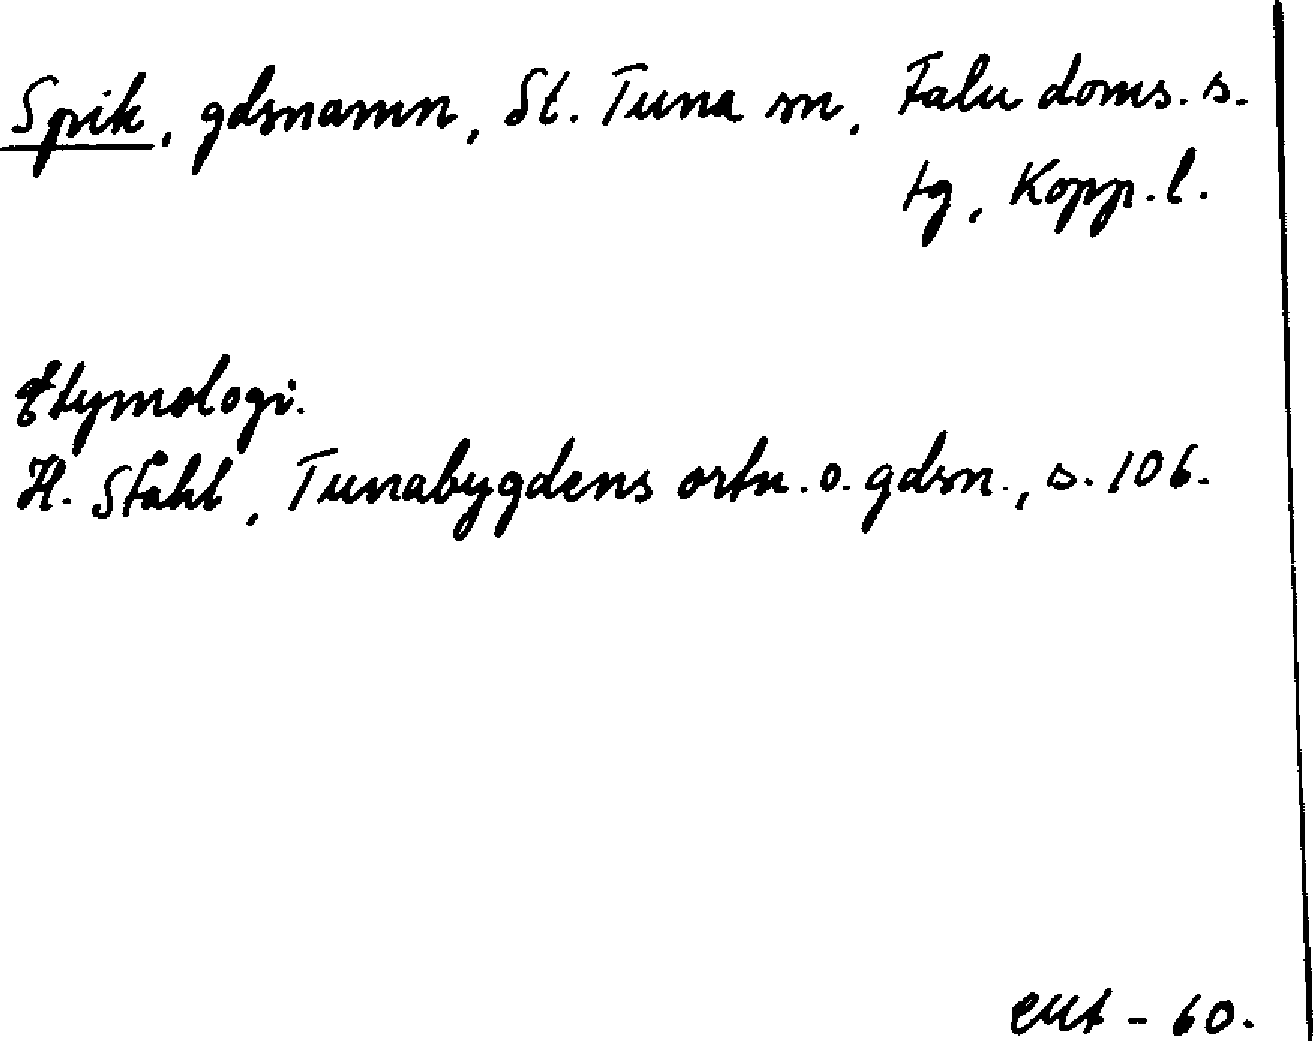 Spik, gdsnamn, St. Tuna sn, Falu doms. s.
tg, Kopp. l.
Etymologi.
H. Ståhl, Tunabygdens ortn. o. gdsn., s. 106.
- 60.